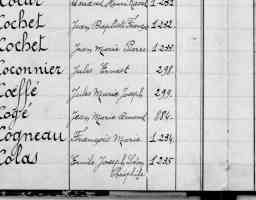 Cochet Jean Baptiste François 1.212.
Cochet Jean Marie Pierre
Coconnier Jules Ernest 298.
Coeffé Jules Marie Joseph 299.
Cogé Jean Marie Armand 884.
Cogneau François Marie 1.234.
Colas Emile Joseph 1.235
Théophile